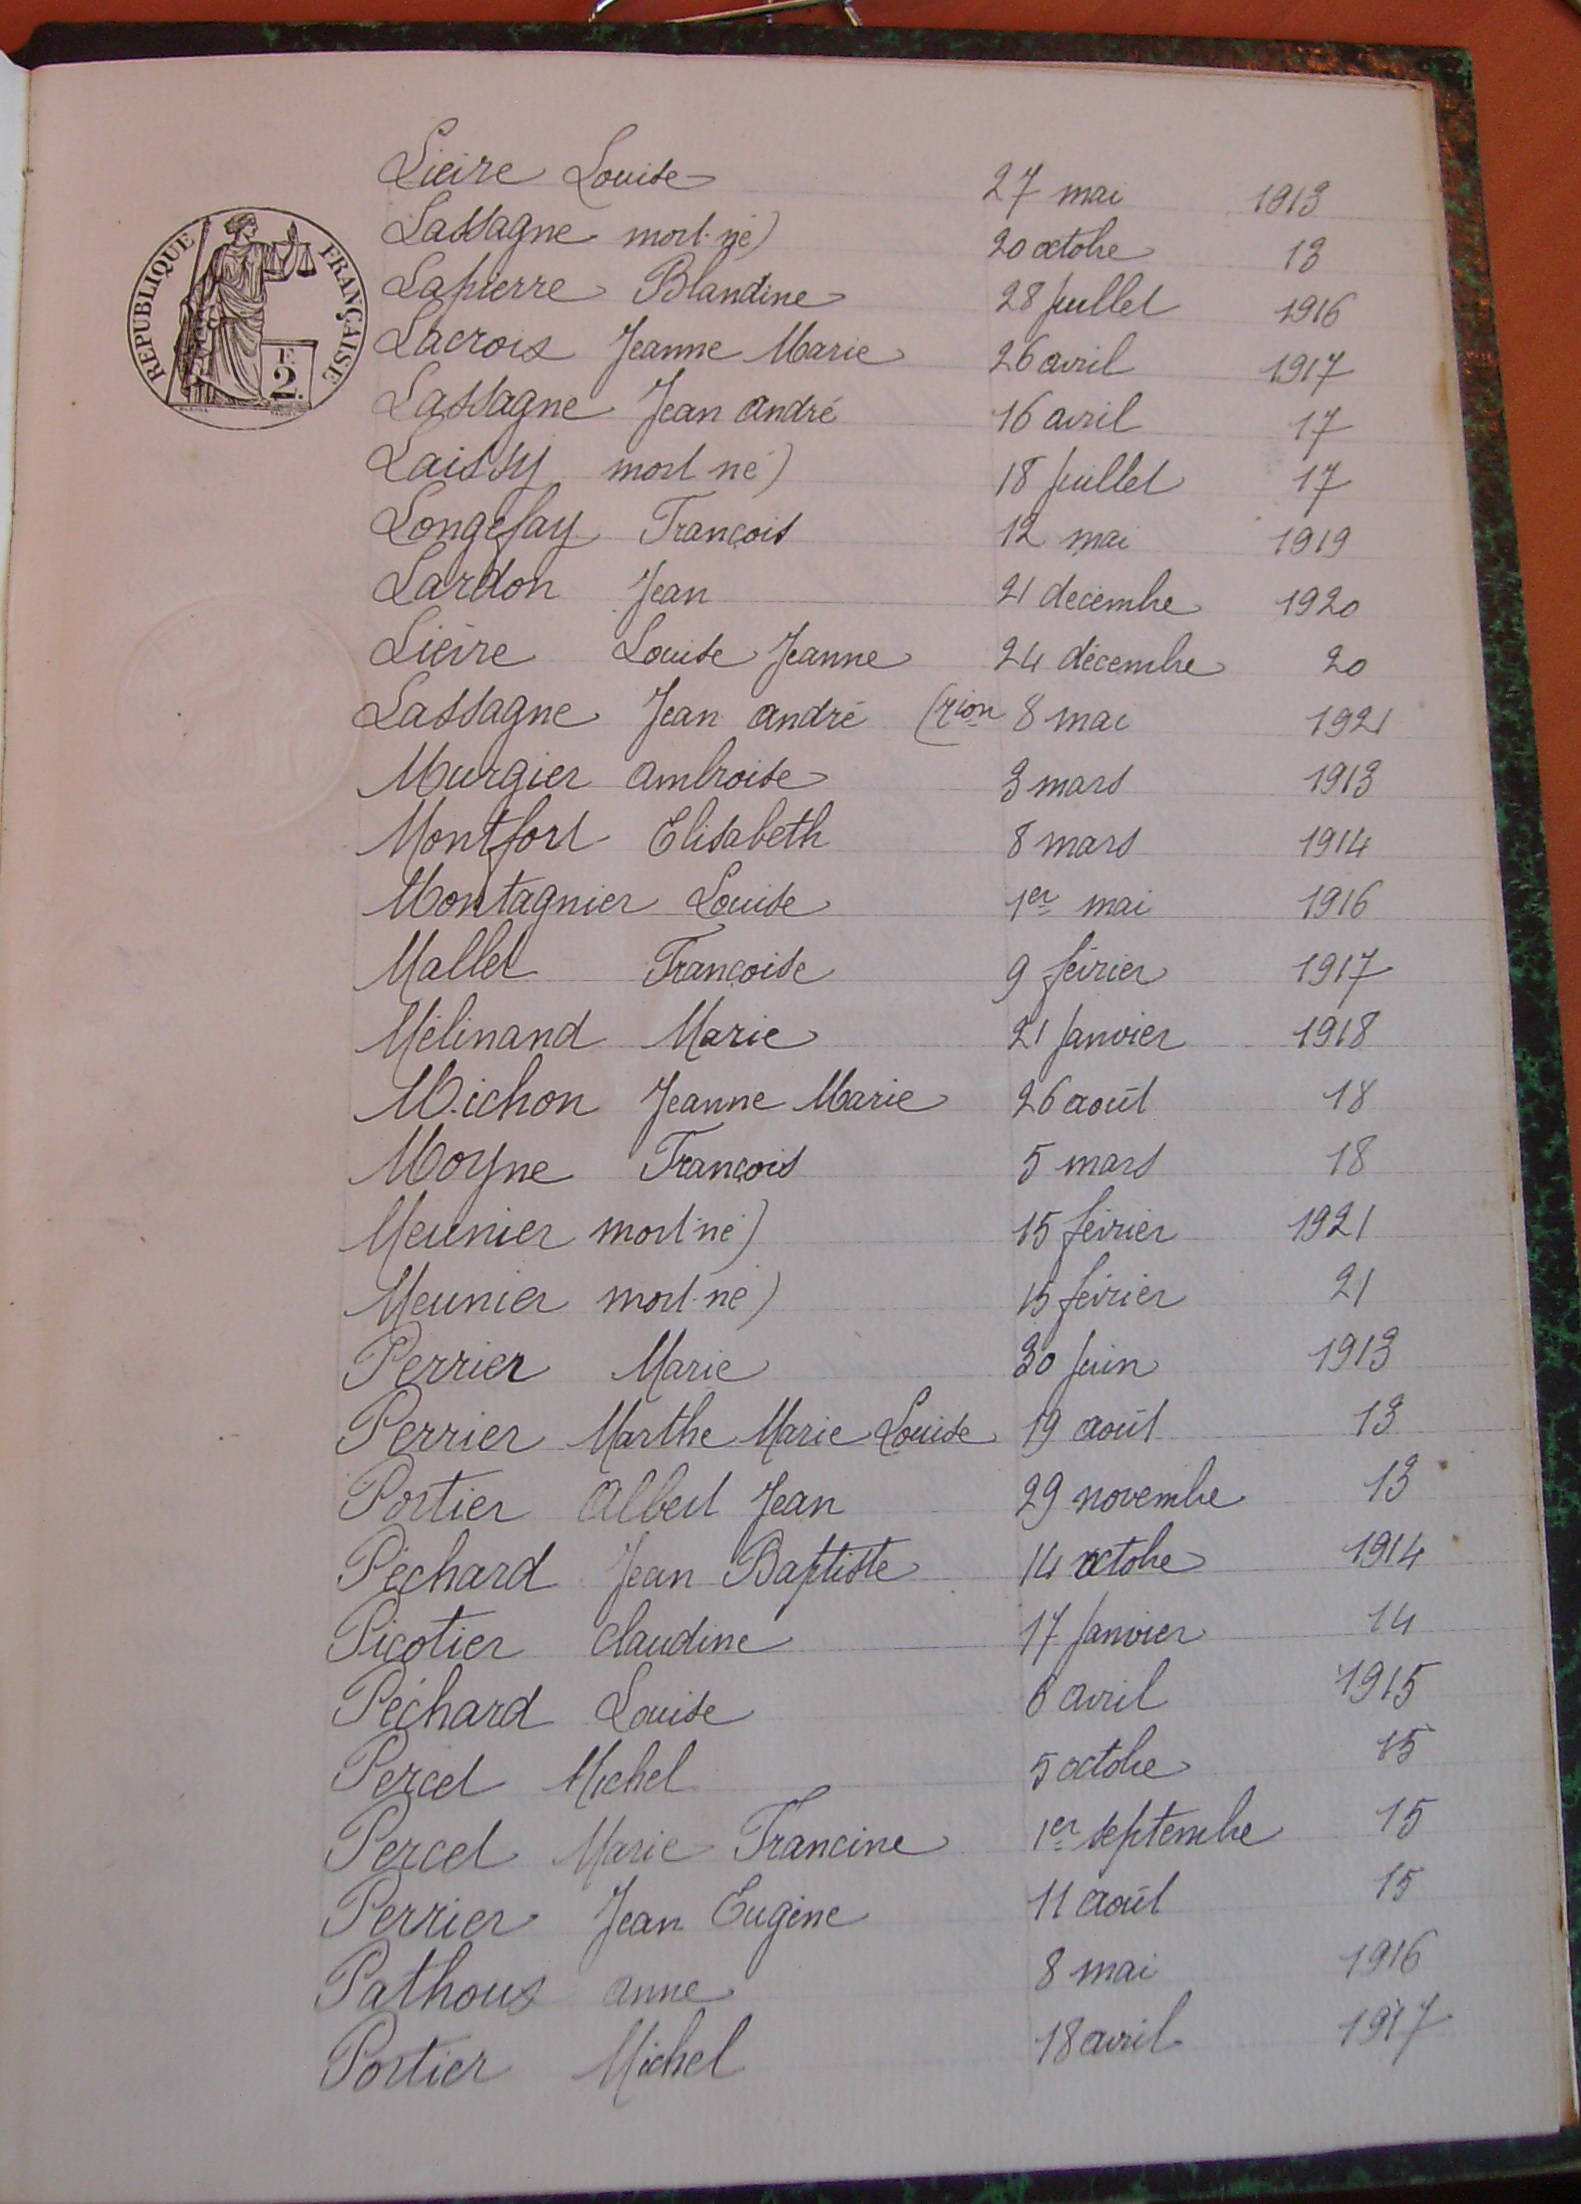 RÉPUBLIQUE FRANÇAISE
2F.
Lièvre Louise 27 mai 1913
Lassagne mort-né) 20 octobre 13
Lapierre Blandine 28 juillet 1916
Lacroix Jeanne Marie 26 avril 1917
Lassagne Jean andré 16 avril 17
Laissy mort né) 18 juillet 17
Longefay François 12 mai 1919
Lardon Jean 21 décembre 1920
Lièvre Louise Jeanne 24 décembre 20
Lassagne Jean andré (rion 8 mai 1921
Murgier ambroise 3 mars 1913
Montfort Elisabeth 8 mars 1914
Montagnier Louise 1er mai 1916
Mallet Françoise 9 février 1917
Mélinand Marie 21 Janvier 1918
Michon Jeanne Marie 26 août 18
Moyne François 5 mars 18
Meunier mort-né) 15 février 1921
Meunier mort-né) 15 février 21
Perrier Marie 30 juin 1913
Perrier Marthe Marie Louise 19 août 13
Portier Albert Jean 29 novembre 13
Péchard Jean Baptiste 14 octobre 1914
Picotier claudine 17 Janvier 14
Péchard Louise 6 avril 1915
Percet Michel 5 octobre 15
Percet Marie Francine 1er septembre 15
Perrier Jean Eugène 11 août 15
Pathoux anne 8 mai 1916
Portier Michel 18 avril 1917